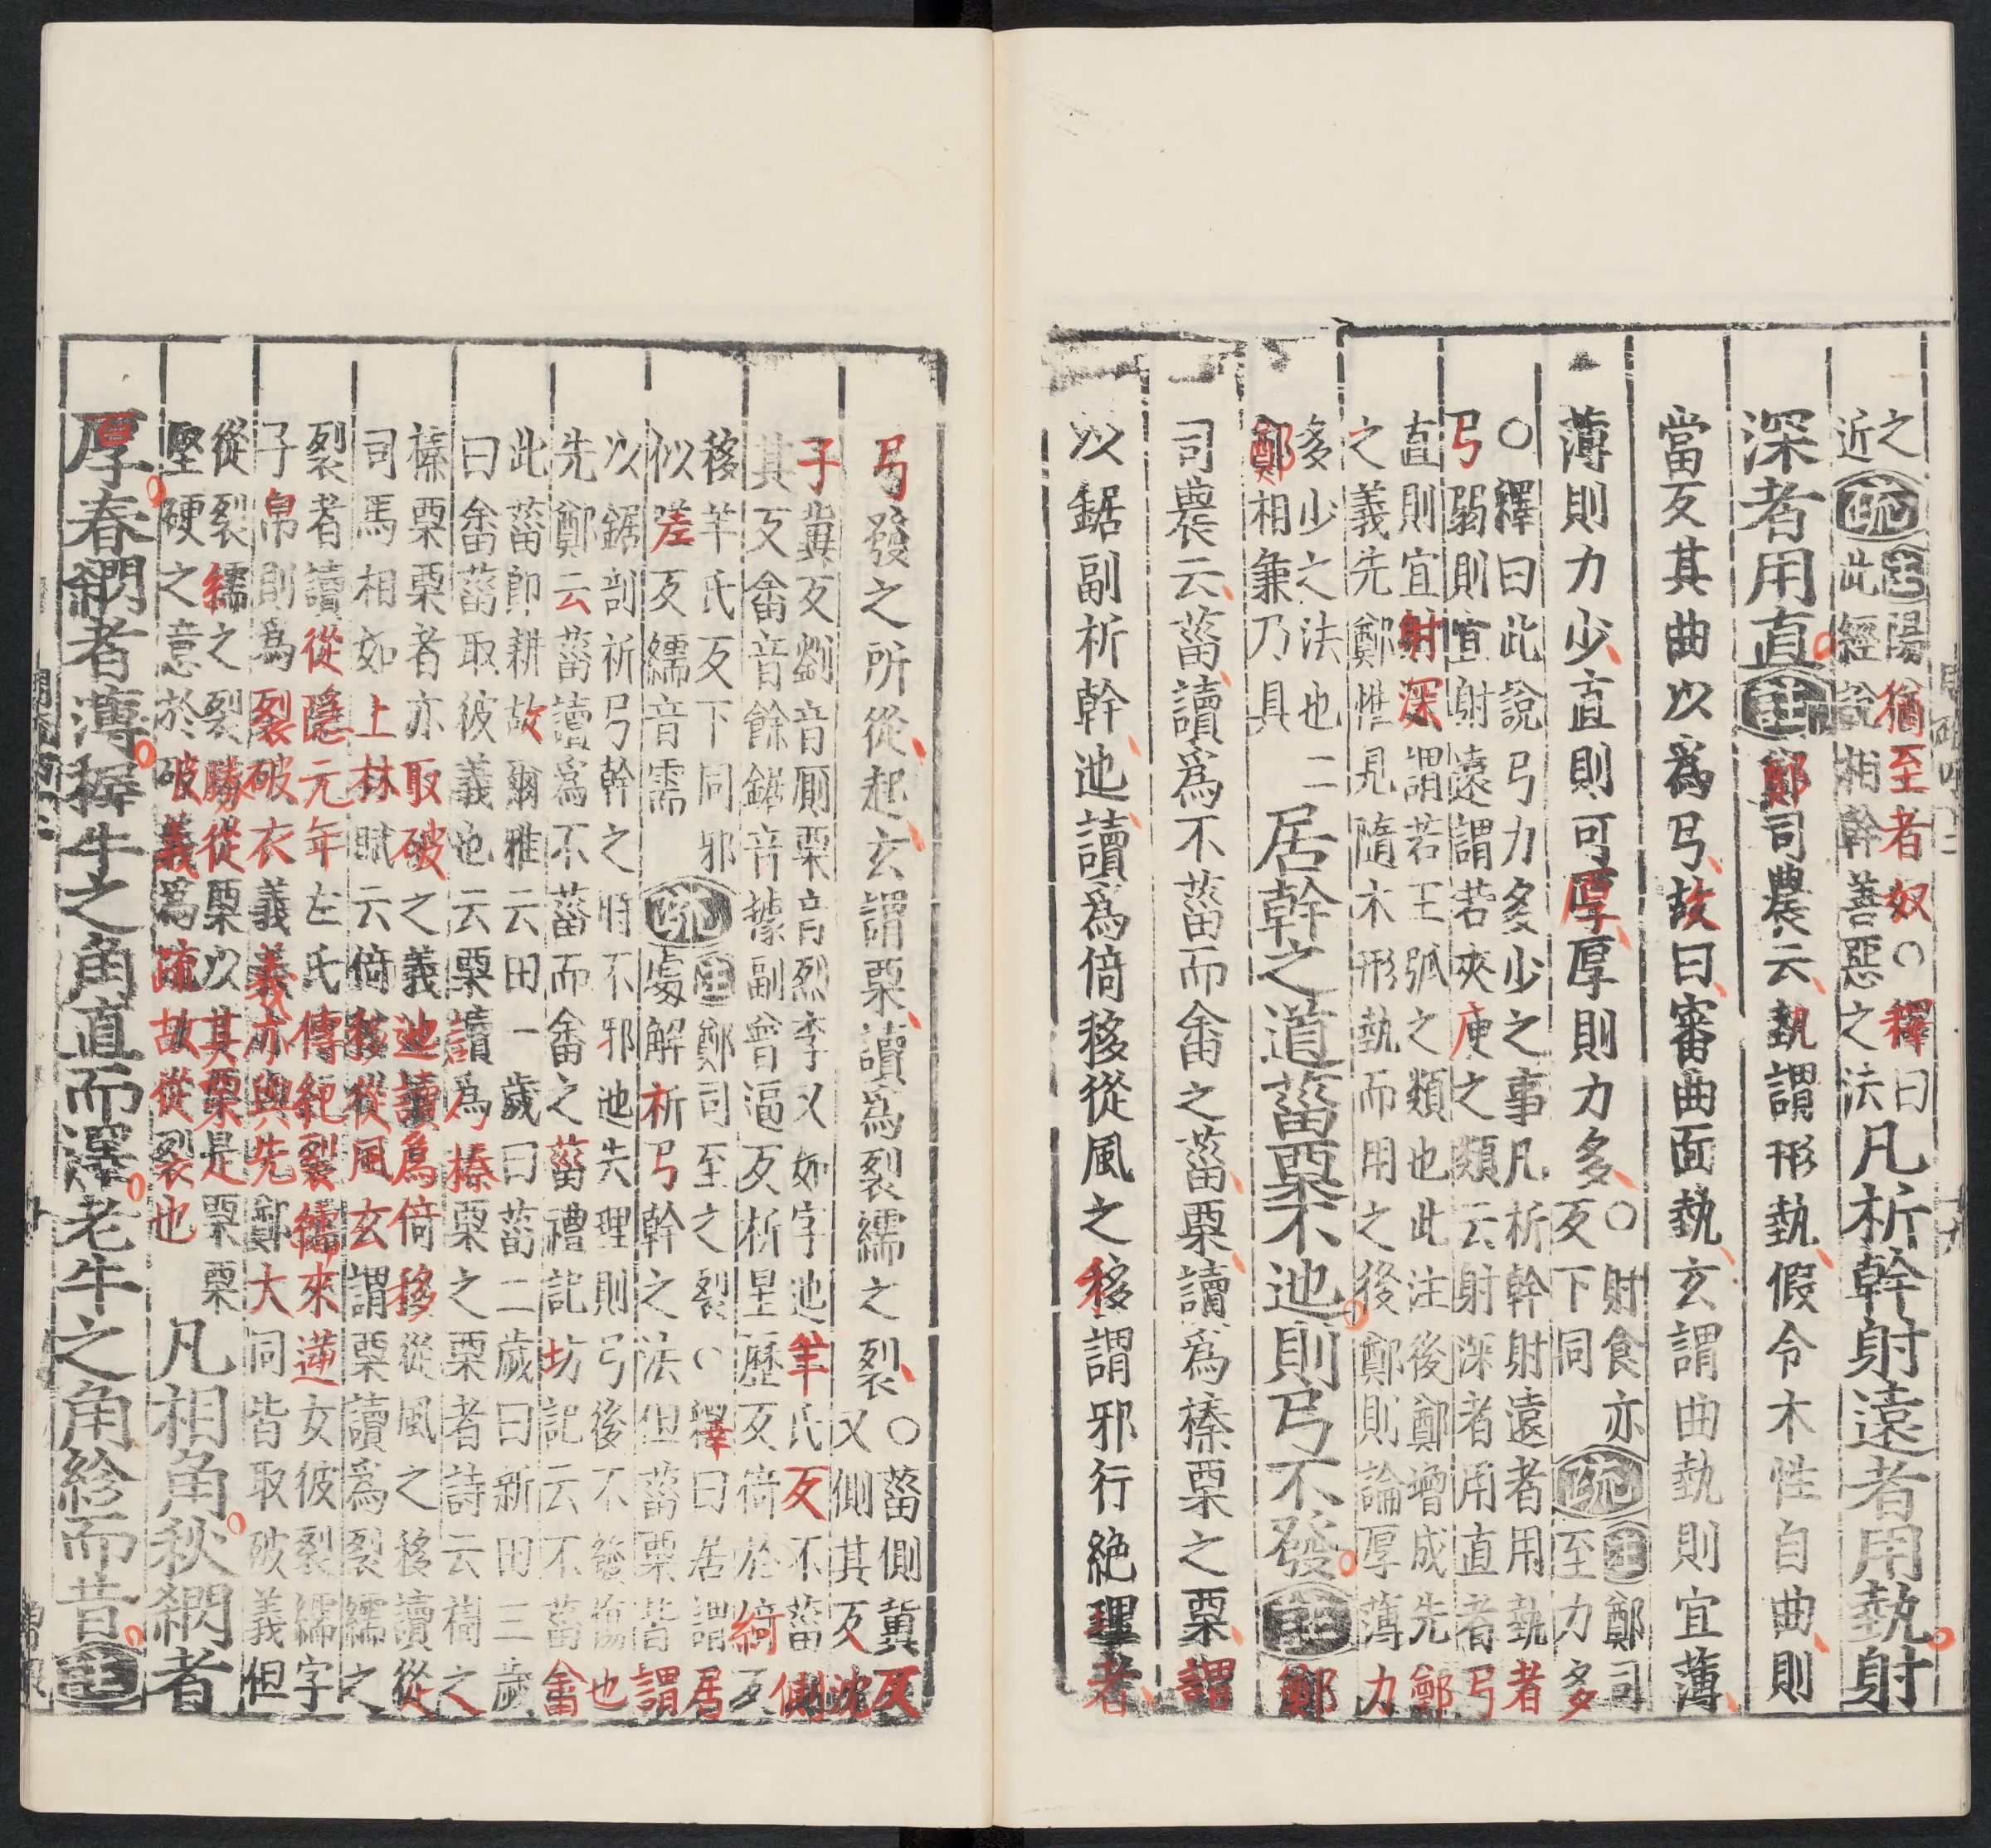 之近疏注陽猶至者奴○釋曰
此經說相幹善惡之法凡析幹射遠者用埶射
深者用直注鄭司農云埶謂形埶假令木性自曲則
當反其曲以為弓故曰審曲面埶玄謂曲埶則宜薄
薄則力少直則可厚厚則力多○射食亦反下同疏注鄭司至力多
○釋曰此說弓力多少之事凡析幹射遠者用埶者
弓弱則宜射遠謂若夾庾之類云射深者用直者弓
直則宜射深謂若王弧之類也此注後鄭增成先鄭
之義先鄭惟見隨木形埶而用之後鄭則論厚薄力
多少之法也二
鄭相兼乃具居幹之道菑栗不迆則弓不發注鄭
司農云菑讀為不菑而畬之菑栗讀為榛栗之栗謂
以鋸副析幹迆讀為倚移從風之移謂邪行絕理者
弓發之所從起玄謂栗讀為裂繻之裂○菑側冀反
又側其反沈
子冀反劉音厠栗音烈李又如字迆羊氏反不菑側
其反畬音餘鋸音據副普逼反析星歷反倚於綺反
移羊氏反下同邪
似差反繻音需疏注鄭司至之裂○釋曰居謂居
處解析弓幹之法但菑栗皆謂
以鋸剖析弓幹之時不邪迆失理則弓後不發傷也
先鄭云菑讀為不菑而畬之菑禮記坊記云不菑畬
此菑即耕故爾雅云田一歲曰菑二歲曰新田三歲
曰畬菑取彼義也云栗讀為榛栗之栗者詩云樹之
榛栗栗者亦取破之義迆讀為倚移從風之移讀從
司馬相如上林賦云倚移從風玄謂栗讀為裂繻之
裂者讀從隱元年左氏傳紀裂繻來逆女彼裂繻字
子帛則為裂破衣義義亦與先鄭大同皆取破義但
從裂繻之裂勝從栗以其栗是栗栗
堅硬之意於破義為疏故從裂也凡相角秋閷者
厚春閷者薄稺牛之角直而澤老牛之角紾而昔注